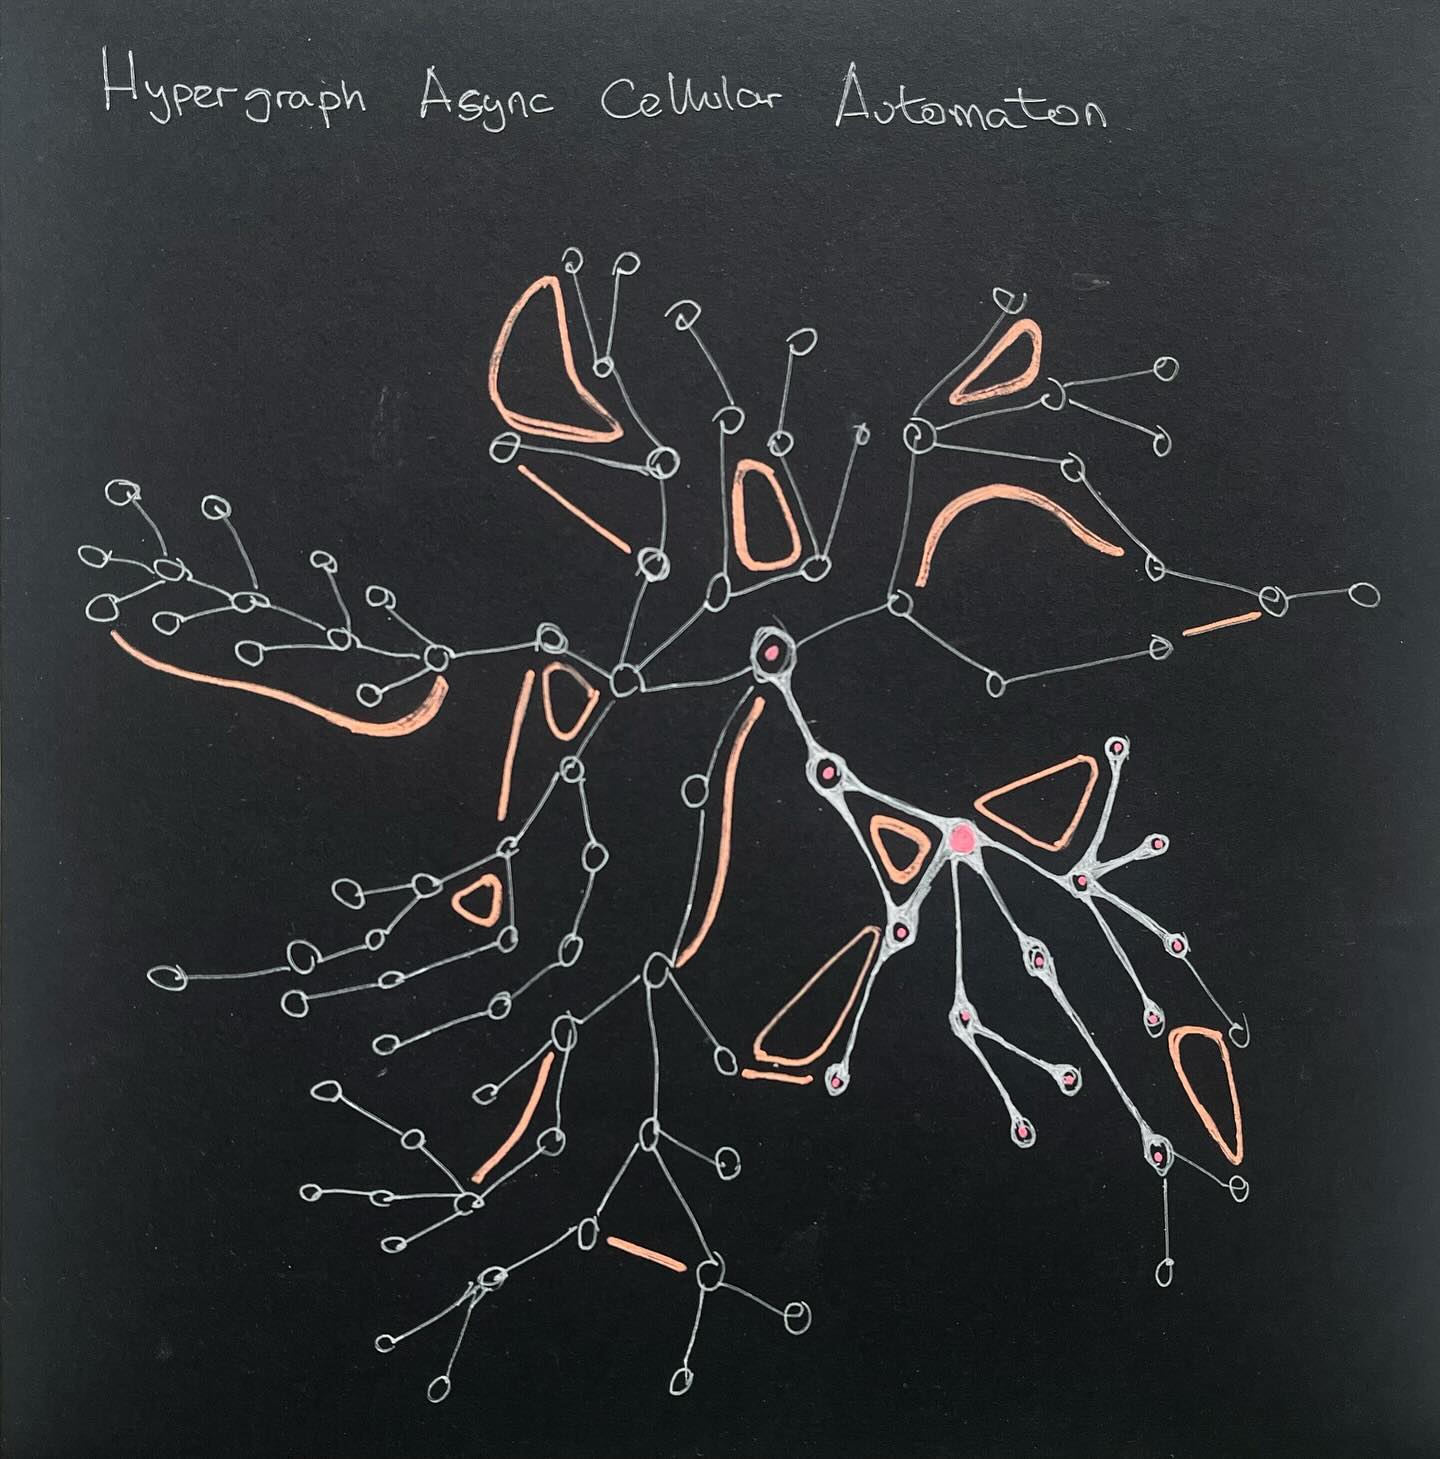 Hypergraph Async Cellular Automaton